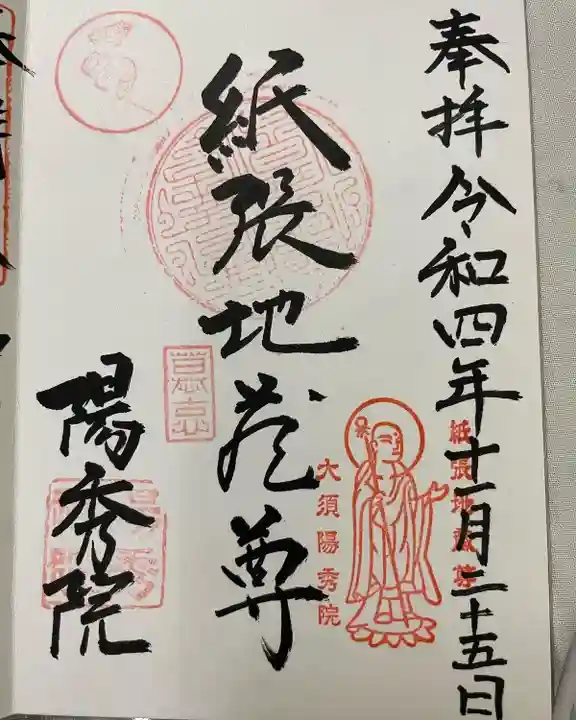 奉拝 令和四年十一月二十五日
紙張地蔵尊
大須陽秀院
紙張地蔵尊
陽秀院